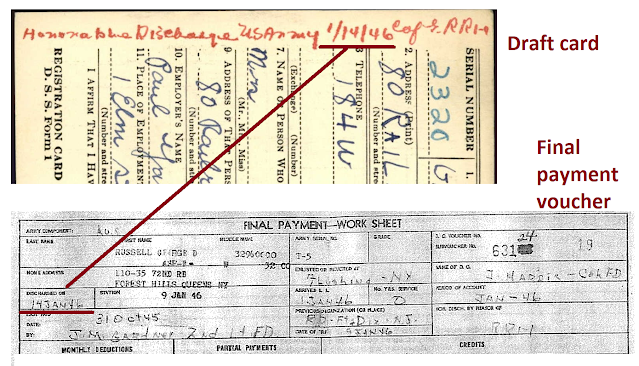 Honorable Discharge US Army 1/14/46 Cof S. RRH
Draft card
SERIAL NUMBER
1.
2320
G
2. ADDRESS (Print)
80 RAIL
(Number and stre
3 TELEPHONE
184W
(Exchange) (Number)
7. NAME OF PERSON WHO
(Mr., Mrs., Miss)
Mrs
9 ADDRESS OF THAT PERS
80 Railr
(Number and stre
10. EMPLOYER'S NAME
Paul
11. PLACE OF EMPLOYMEN
1 Elm S
(Number and stre
I AFFIRM THAT I HAV
REGISTRATION CARD
D. S. S. Form 1
Final
payment
voucher
FINAL PAYMENT—WORK SHEET
ARMY COMPONENT:
LAST NAME FIRST NAME MIDDLE NAME ARMY SERIAL NO. GRADE
RUSSELL GEORGE D 32960600 T-5
D. O. VOUCHER NO. 24
SUBVOUCHER NO. 631 19
HOME ADDRESS
110-35 72ND RD
FOREST HILLS QUEENS NY
ENLISTED OR INDUCTED AT
Flushing - NY
NAME OF D. O.
DISCHARGED ON
14JAN46
STATION
9 JAN 46
ARRIVED
1JAN46
YRS. SERVICE
0
PERIOD OF ACCOUNT
JAN-46
310ct45
DATE:
PREVIOUS ORGANIZATION (OR PLACE)
Ft Dix - N.J.
9JAN46
HON. DISCH. BY REASON OF
RR1-1
BY: J.M. Gardner 2nd Lt FD
MONTHLY DEDUCTIONS PARTIAL PAYMENTS CREDITS